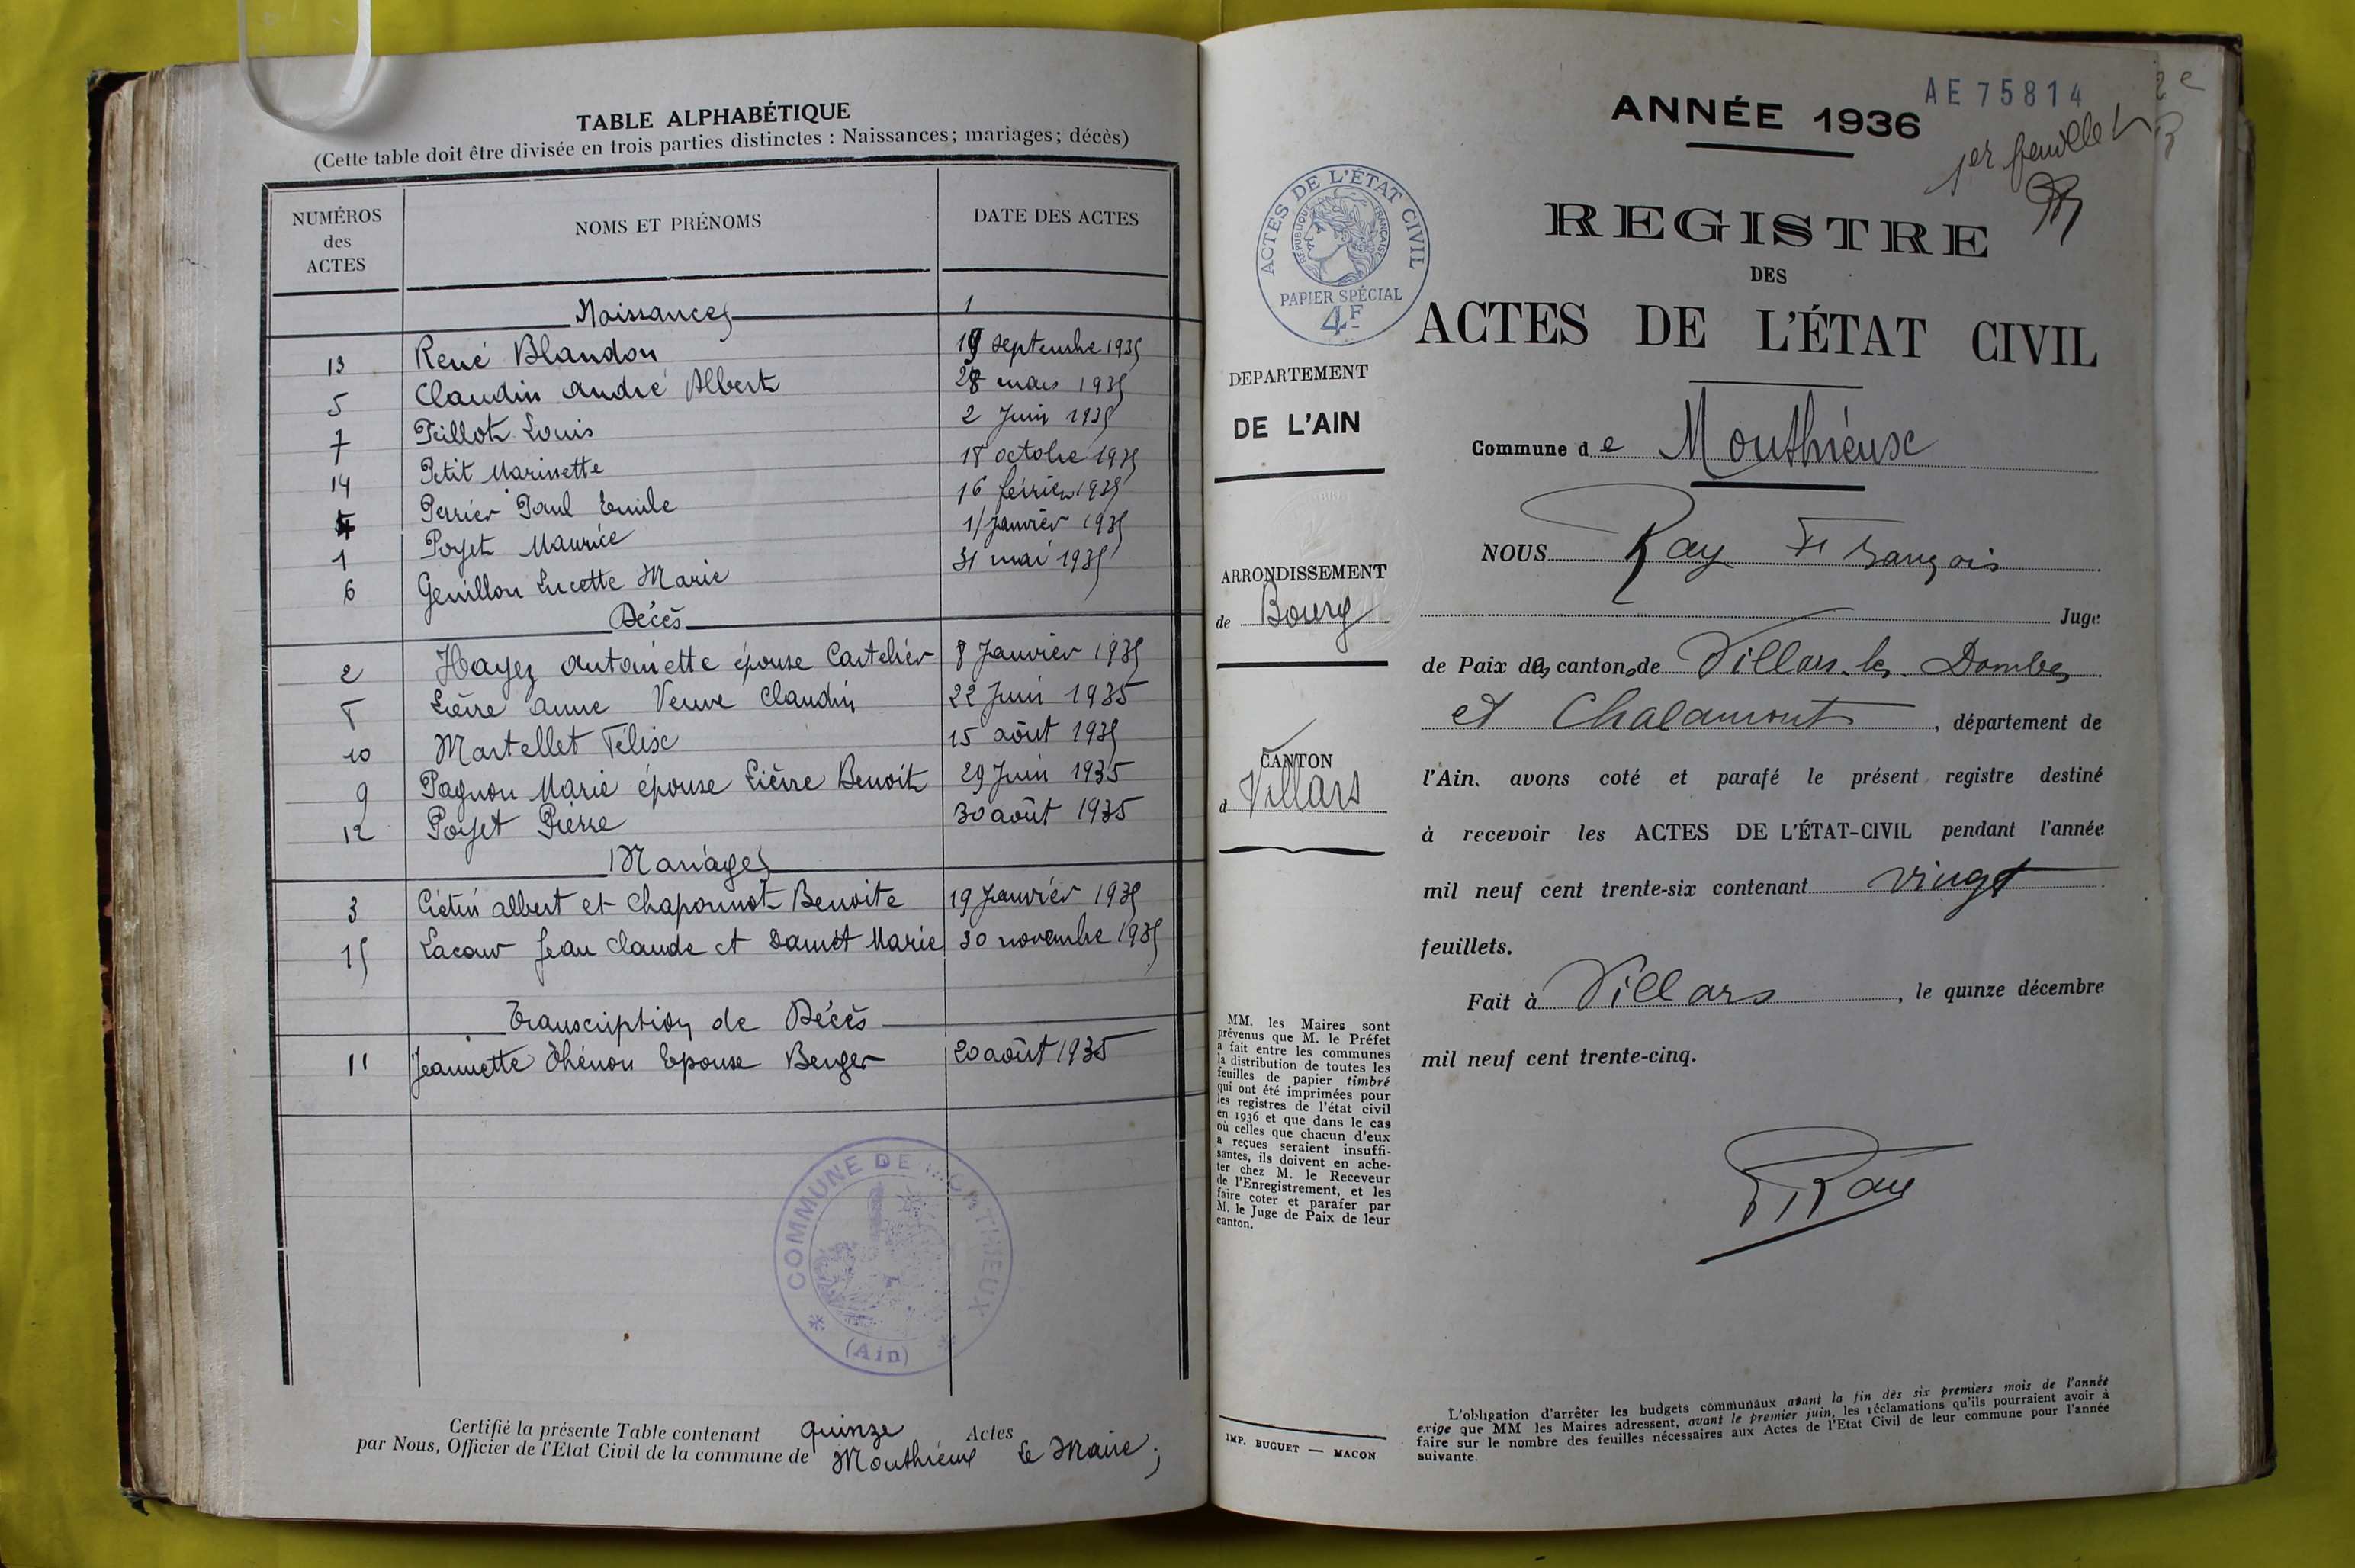 TABLE ALPHABÉTIQUE
(Cette table doit être divisée en trois parties distinctes : Naissances; mariages; décès)
NUMÉROS des ACTES NOMS ET PRÉNOMS DATE DES ACTES
Naissances
13 René Blandon 19 septembre 1935
5 Claudin André Albert 28 mars 1935
7 Louis 2 Juin 1935
14 Petit Marinette 18 octobre 1935
4 Perrier Paul Emile 16 février 1935
1 Poyet Maurice 1 janvier 1935
6 Genillon Lucette Marie 31 mai 1935
Décès
2 Hayez Antoinette épouse Cartelier 8 Janvier 1935
Lièvre Anne Veuve Claudin 22 Juin 1935
10 Martellet Félix 15 août 1935
9 Pagnon Marie épouse Lièvre Benoit 29 Juin 1935
12 Poyet Pierre 30 août 1935
Mariages
3 albert et Chaponnot Benoite 19 Janvier 1935
15 Lacour Jean Claude et Damet Marie 30 novembre 1935
Transcription de Décès
11 Jeannette Thénon Epouse Berger 20 août 1935
COMMUNE DE MONTHIEUX
(Ain)
Certifié la présente Table contenant quinze Actes
par Nous, Officier de l'Etat Civil de la commune de Monthieux Le Maire;
AE 75814
ANNÉE 1936
1er feuillet
REGISTRE
DES
ACTES DE L'ÉTAT CIVIL
ACTES DE L'ÉTAT CIVIL
RÉPUBLIQUE FRANÇAISE
PAPIER SPÉCIAL
4F
DEPARTEMENT
DE L'AIN
ARRONDISSEMENT
de Bourg
CANTON
d Villars
Commune de Monthieux
NOUS Ray François
Juge
de Paix des cantons de Villars-les-Dombes
et Chalamont, département de
l'Ain, avons coté et parafé le présent registre destiné
à recevoir les ACTES DE L'ÉTAT-CIVIL pendant l'année
mil neuf cent trente-six contenant vingt
feuillets.
Fait à Villars, le quinze décembre
mil neuf cent trente-cinq.
Ray
MM. les Maires sont
prévenus que M. le Préfet
a fait entre les communes
la distribution de toutes les
feuilles de papier timbré
qui ont été imprimées pour
les registres de l'état civil
en 1936 et que dans le cas
où celles que chacun d'eux
a reçues seraient insuffi-
santes, ils doivent en ache-
ter chez M. le Receveur
de l'Enregistrement, et les
faire coter et parafer par
M. le Juge de Paix de leur
canton.
IMP. BUGUET — MACON
L'obligation d'arrêter les budgets communaux avant la fin des six premiers mois de l'année
exige que MM les Maires adressent, avant le premier juin, les réclamations qu'ils pourraient avoir à
faire sur le nombre des feuilles nécessaires aux Actes de l'Etat Civil de leur commune pour l'année
suivante.